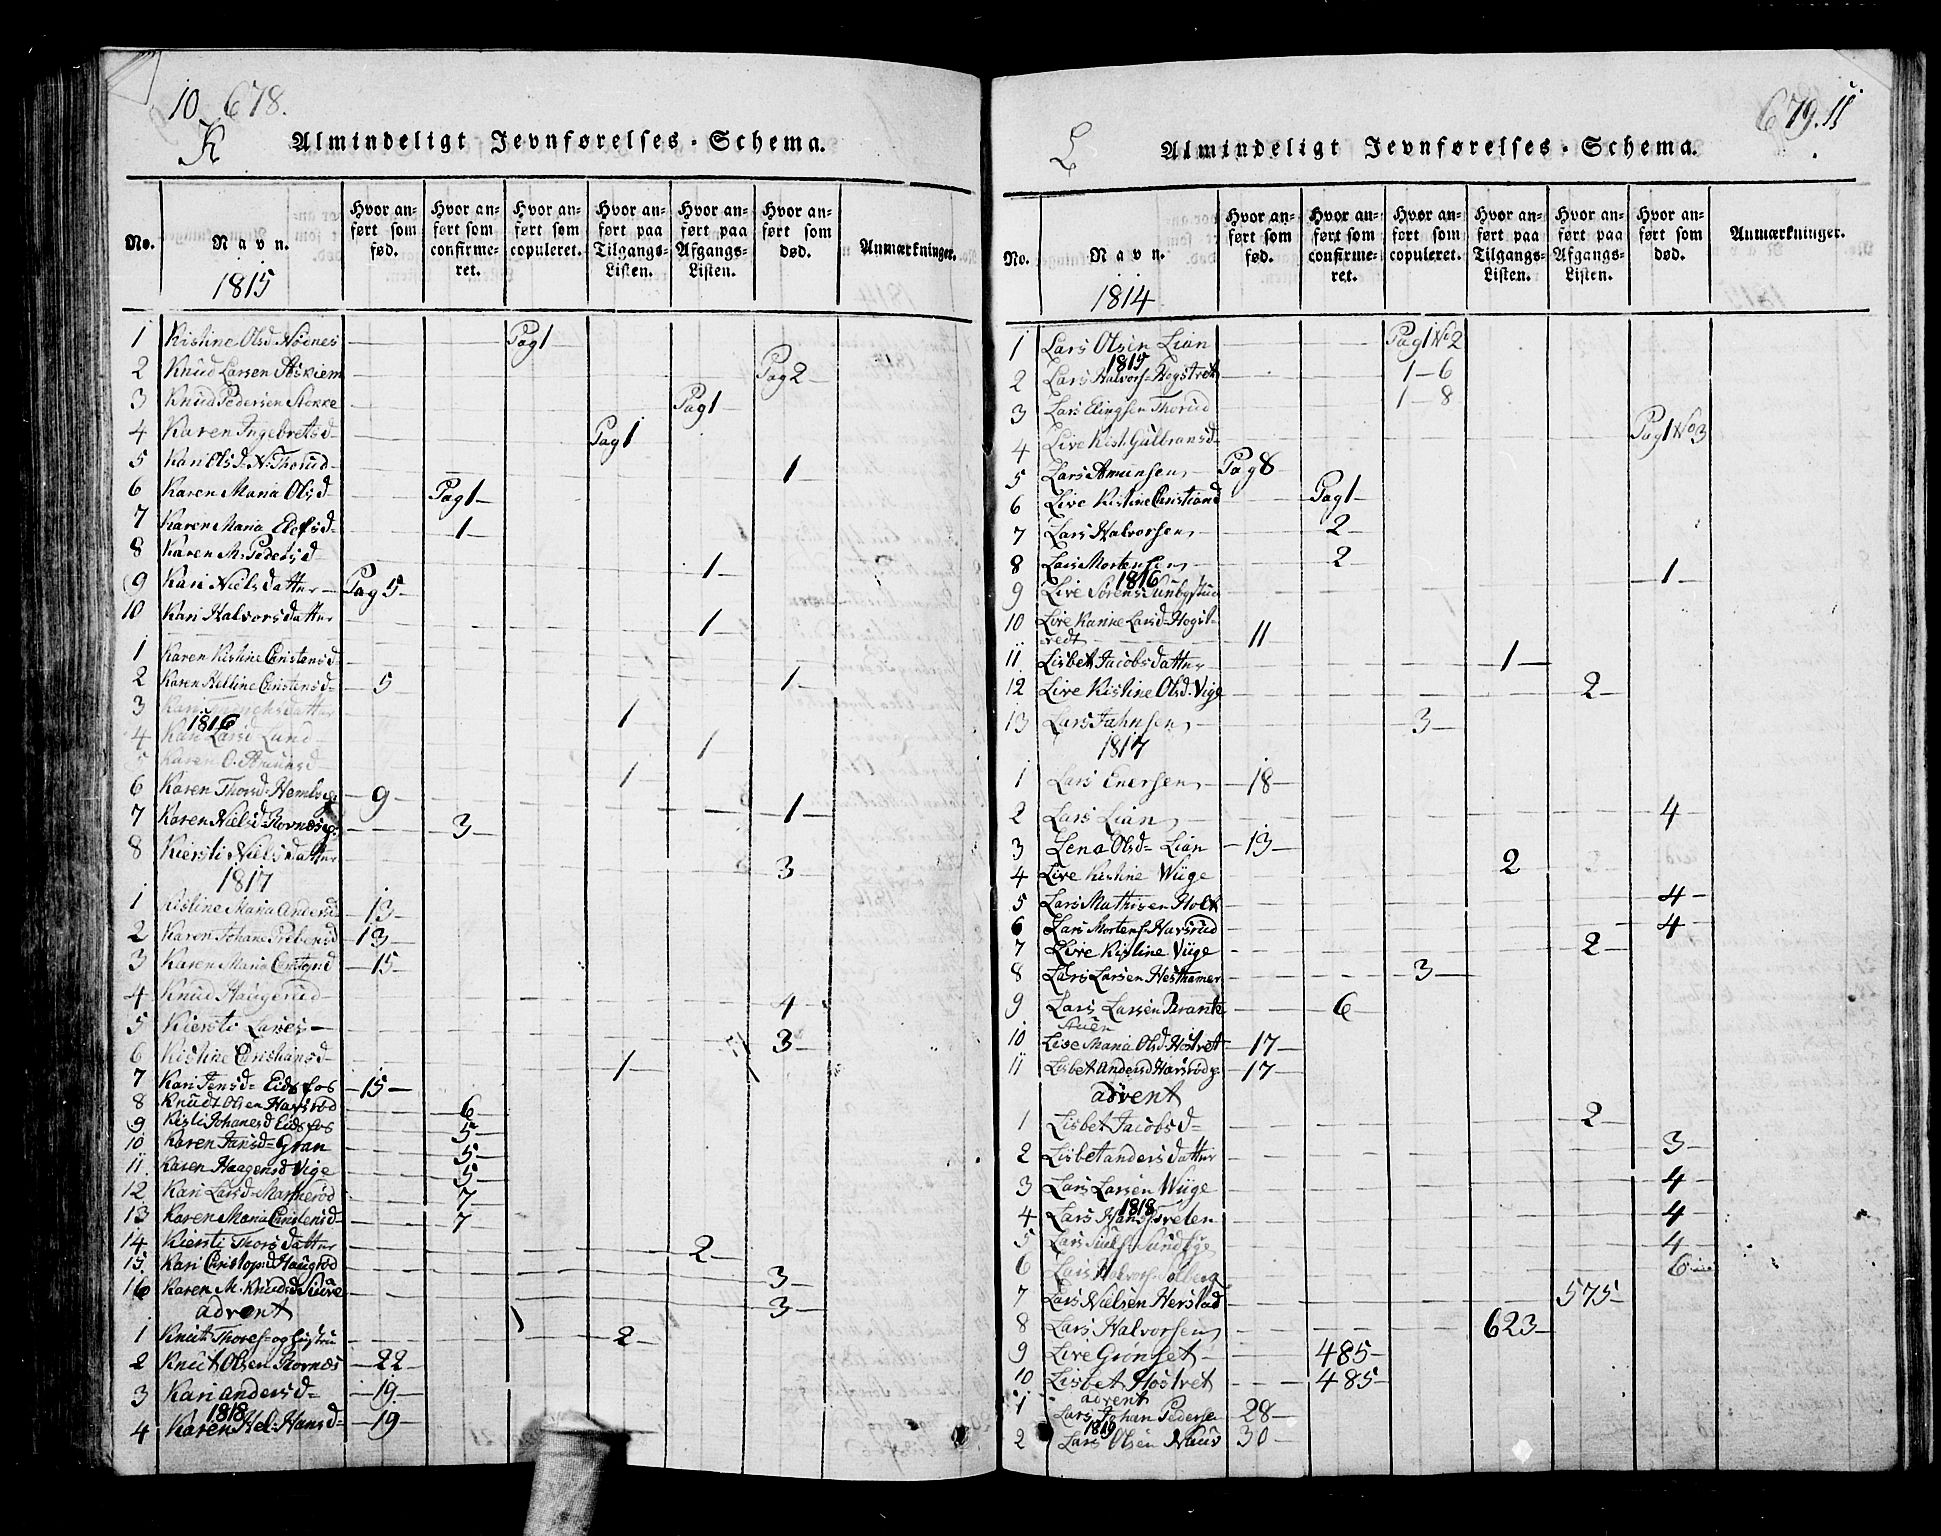 10 678.
K
Almindeligt Jevnførelses-Schema.
No.
Navn.
Hvor anført som fød.
Hvor anført som confirmeret.
Hvor anført som copuleret.
Hvor anført paa Tilgangs-Listen.
Hvor anført paa Afgangs-Listen.
Hvor anført som død.
Anmærkninger.
1815
1 Kistine Olsd Nødnes Pag 1
2 Knud Larsen Pag 2
3 Knud Pedersen Stokke Pag 1
4 Karen Ingebretsd Pag 1
5 Kari Olsd N. Thorud 1
6 Karen Maria Olsd Pag 1
7 Karen Maria Elefsd 1
8 Karen M. Pedersd 1
9 Kari Nielsdatter Pag 5
10 Kari Halvorsdatter 1
1 Karen Kistine Christensd
2 Karen Helline Christensd 5 1
3 1
1816
4 Kari Larsd Lund 1
5 Karen O. 1
6 Karen Thorsd 9 1
7 Karen Nielsd 3
8 Kiersti Nielsdatter 3
1817
1 Kistine Maria Andersd 13
2 Karen Johane 13
3 Karen Maria 15
4 Knud Haugerud 4
5 Kiersti Larses 3
6 Kistine Christiansd 1
7 Kari Jensd Eidsfos 15
8 Knudt Olsen Havsrød 6
9 Kisti Johanesd Eidsfos 5
10 Karen Jansd Gran 5
11 Karen Haagensd Vige 5
12 Kari Larsd 7
13 Karen Maria Christensd 7
14 Kiersti Thorsdatter 2
15 Kari Christopsd Haugrød 3
16 Karen M. Knudsd 3
advent
1 Knut Thores og Hustru 2
2 Knut Olsen Rovnes 22
3 Kari Andersd 19
1818
4 Karen Hel. Hansd 19
679. 11
L
Almindeligt Jevnførelses-Schema.
No.
Navn.
Hvor anført som fød.
Hvor anført som confirmeret.
Hvor anført som copuleret.
Hvor anført paa Tilgangs-Listen.
Hvor anført paa Afgangs-Listen.
Hvor anført som død.
Anmærkninger.
1814
1 Lars Olsen Lian Pag 1 No 2
1815
2 Lars Halvors. Hogstret 1-6
3 Lars Elingsen Thorud 1-8
4 Live Kist. Gulbransd Pag 1 No 3
5 Lars Amunsen Pag 8
6 Live Kistine Christiand Pag 1
7 Lars Halvorsen 2
8 Lars Mortensen 2
1816
9 Live Sørens 1
10 Live Karine Larsd Hogstredt 11
11 Lisbet Jacobsdatter 1
12 Live Kistine Olsd Vige 2
13 Lars Jahnsen 3
1817
1 Lars Enersen 18
2 Lars Lian 4
3 Lena Olsd Lian 13
4 Live Kistine Wiige 2
5 Lars Mathisen Holt 4
6 Lars Mortens Havsrud 4
7 Live Kistine Viige 2
8 Lars Larsen Hesthamer 3
9 Lars Larsen 6
10 Live Maria Olsd Hostvet 17
11 Lisbet Andersd 17
advent
1 Lisbet Jacobsd 2
2 Lisbet andersdatter 3
3 Lars Larsen Wiige 4
1818
4 Lars Hans 4
5 Lars 4
6 Lars Halvors. Solberg 6
7 Lars Nielsen Herstad 575
8 Lars Halvorsen 623
9 Live Grønset 485
10 Lisbet Hostvet 485
advent
1 Lars Johan Pederse 28
1819
2 Lars Olsen 30